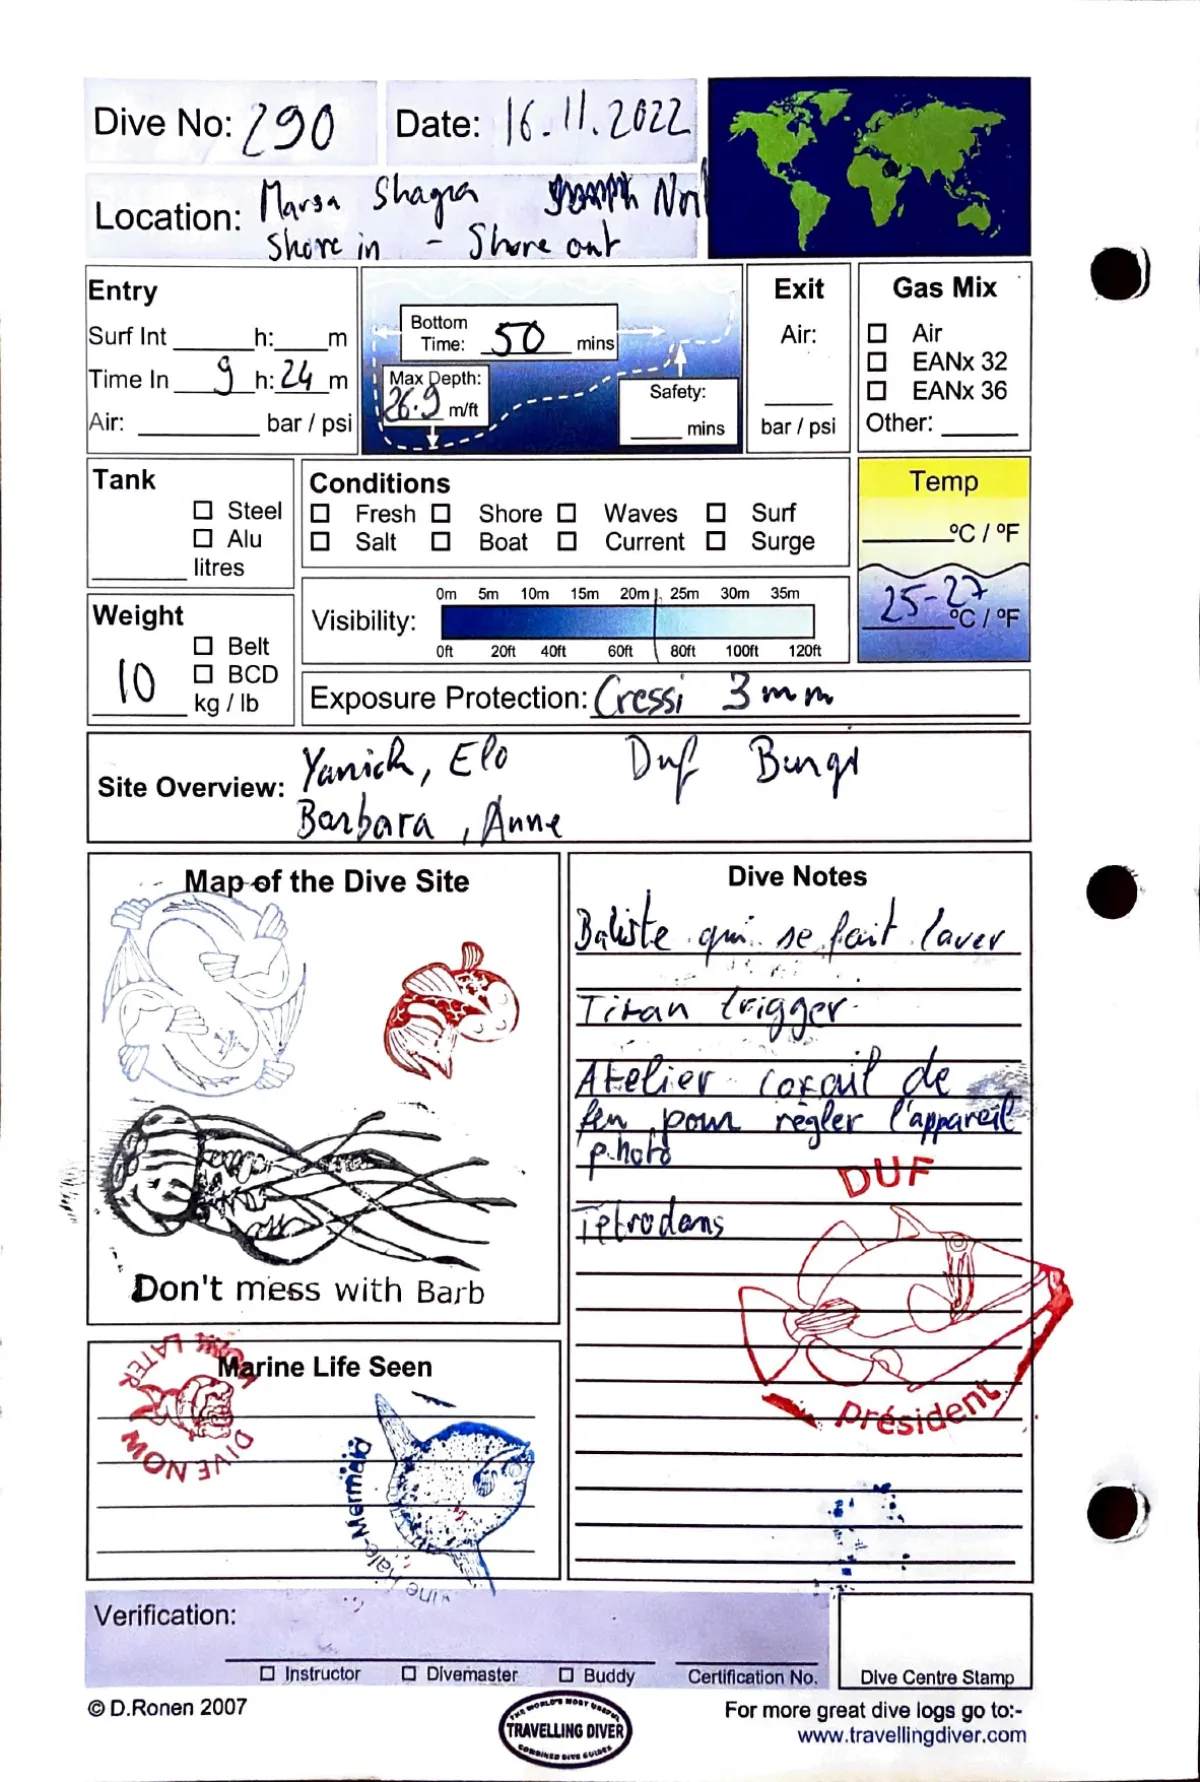 Dive No: 290
Date: 16.11.2022
Location: Marsa Shagra
Shore in - Shore out
Entry
Surf Int ____ h: ____ m
Time In 9 h: 24 m
Air: ____ bar / psi
Bottom Time: 50 mins
Max Depth: 26.9 m/ft
Safety: ____ mins
Exit
Air:
____
bar / psi
Gas Mix
Air
EANx 32
EANx 36
Other: ____
Tank
Steel
Alu
____ litres
Conditions
Fresh Shore Waves Surf
Salt Boat Current Surge
Temp
____ °C / °F
25-27 °C / °F
Weight
Belt
BCD
10 kg / lb
Visibility:
0m 5m 10m 15m 20m 25m 30m 35m
0ft 20ft 40ft 60ft 80ft 100ft 120ft
Exposure Protection: Cressi 3mm
Site Overview: Yanick, Elo Duf
Barbara, Anne
Map of the Dive Site
Don't mess with Barb
Dive Notes
Baliste qui se fait laver
Titan trigger
Atelier corail de
feu pour règler l'appareil
photo
Tetrodons
DUF
président
Marine Life Seen
LATER
DIVE NOW
Mermaid
Verification:
Instructor Divemaster Buddy Certification No.
Dive Centre Stamp
© D.Ronen 2007
THE WORLD'S MOST USEFUL
TRAVELLING DIVER
COMBINED DIVE GUIDES
For more great dive logs go to:-
www.travellingdiver.com